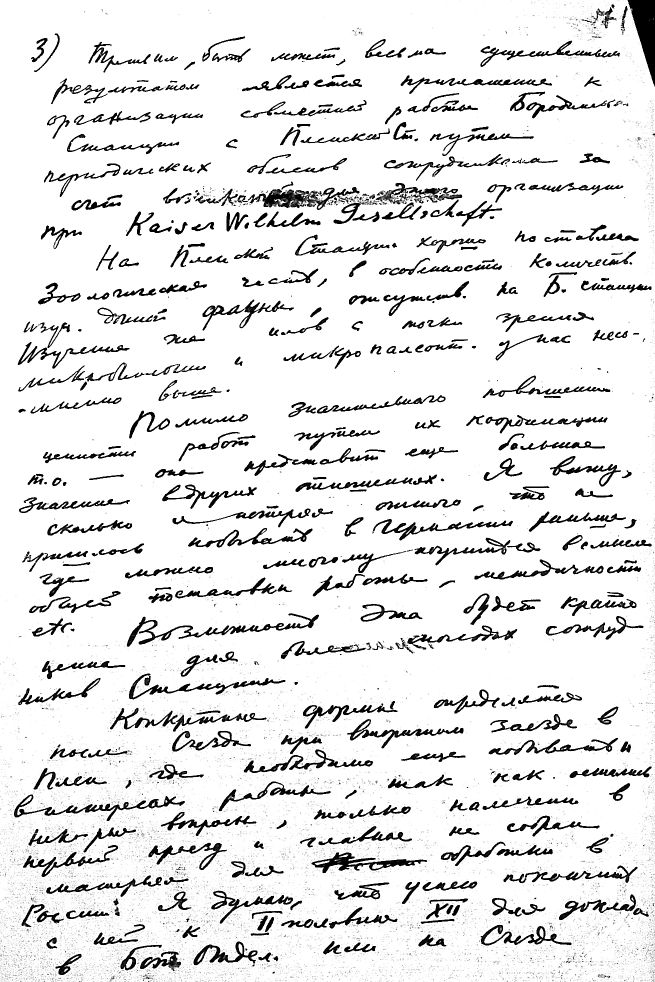 71
3) Третьим, быть может, весьма существенным
результатом является приглашение к
организации совместной работы Бородинской
Станции с Пленской Ст. путем
периодических обменов сотрудниками за
счет организации
при Kaiser Wilhelm Gesellschaft.
На Пленской Станции хорошо поставлена
Зоологическая часть, в особенности количеств.
изуч. донной фауны, отсутств. на Б. станции
Изучение же илов с точки зрения
микробиологии и микропалеонт. у нас несо-
мненно выше.
Помимо значительного повышения
ценности работ путем их координации
т.о. — она представит еще большое
значение в других отношениях. Я вижу,
сколько я потерял оттого, что не
пришлось побывать в Германии раньше,
где можно многому поучиться в смысле
общей постановки работы, методичности
etc. Возможность эта будет крайне
ценна для более молодых сотруд
ников Станции.
Конкретные формы определятся
после Съезда при вторичном заезде в
Плен, где необходимо еще побывать и
в интересах работы, так как остались
нек-рые вопросы, только намечены в
первый проезд и главное не собран
материал для обработки в
России. Я думаю, что успею покончить
с ней к II половине XII для доклада
в Бот. Отдел. или на Съезде